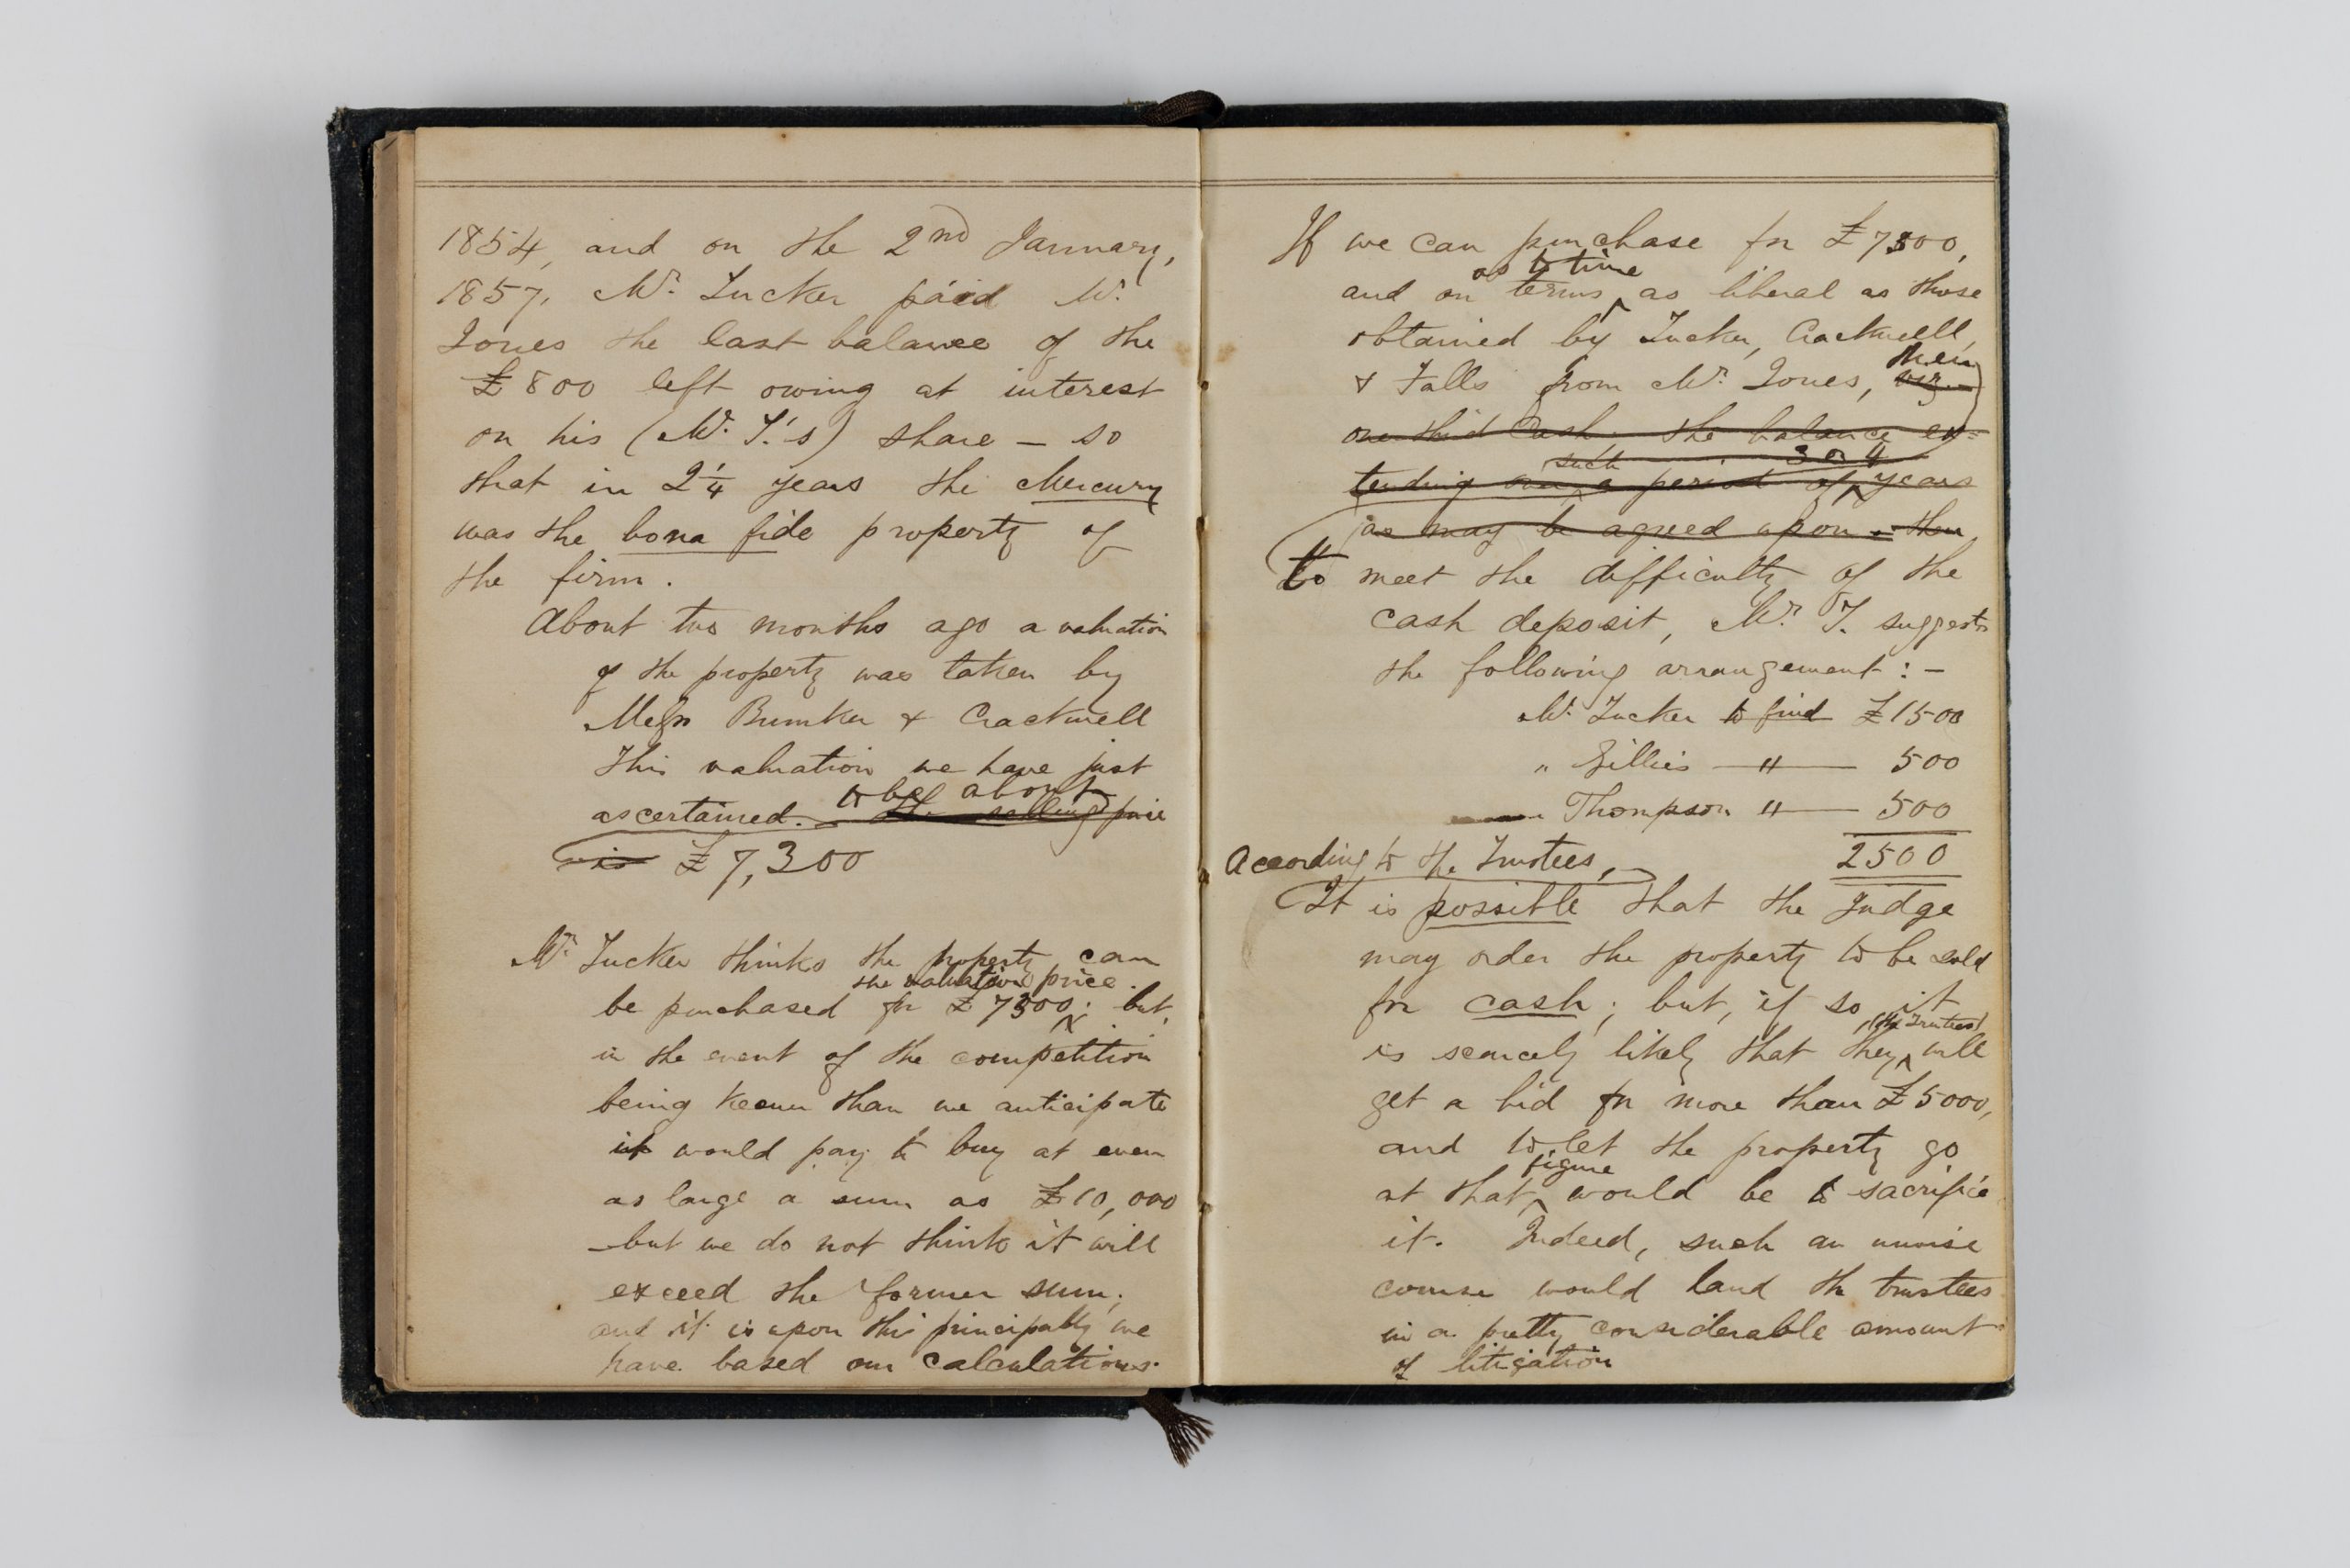 1854, and on the 2nd January,
1857, Mr. Tucker paid Mr.
Jones the last balance of the
£800 left owing at interest
on his (Mr. T.'s) share – so
that in 2¼ years the Mercury
was the bona fide property of
the firm.
About two months ago a valuation
of the property was taken by
Messrs & Crackwell
This valuation we have just
to be about
ascertained. The selling price
is £7,300
Mr Tucker thinks the property can
the valuation price
be purchased for £7300; but,
in the event of the competition
being keener than we anticipate
it would pay to buy at even
as large a sum as £10,000
– but we do not think it will
exceed the former sum;
and it is upon this principally we
have based our calculations.
If we can purchase for £7300,
as to time
and on terms as liberal as those
obtained by Tucker, Crackwell,
then
& Falls from Mr. Jones, viz. –
one third Cash, the balance ex=
such 3 or 4
tending over a period of years
as may be agreed upon – then
To meet the difficulty of the
cash deposit, Mr. T. suggests
the following arrangement: –
Mr. Tucker to find £1500
" Gillies — " — 500
Thompson " — 500
2500
According to the Trustees,
It is possible that the Judge
may order the property to be sold
for cash; but, if so, it
(the Trustees)
is scarcely likely that they will
get a bid for more than £5000,
and to let the property go
figure
at that would be to sacrifice
it. Indeed, such an unwise
course would land the trustees
in a pretty considerable amount
of litigation